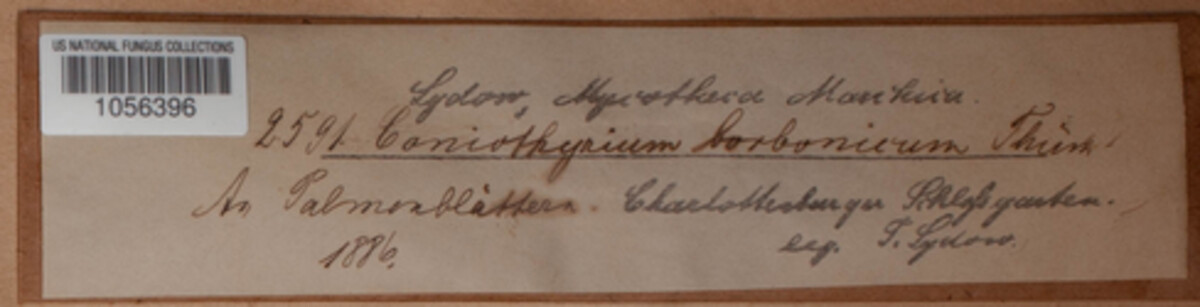 US NATIONAL FUNGUS COLLECTIONS
1056396
Sydow, Mycotheca Marchica.
2591. Coniothyrium borbonicum Thüm.
An Palmenblättern. Charlottenburger Schloßgarten.
1886. leg. P. Sydow.